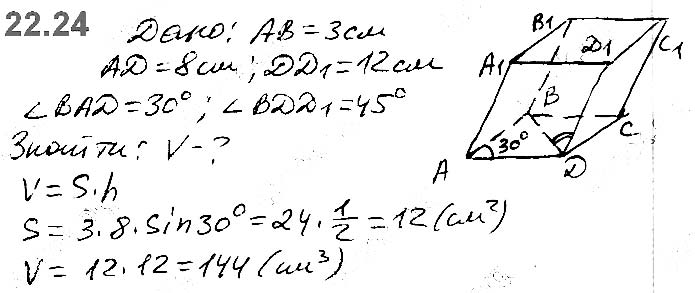 22.24 Дано: AB = 3 см
AD = 8 см; DD1 = 12 см
∠BAD = 30°; ∠BDD1 = 45°
Знайти: V - ?
V = S·h
S = 3·8·sin30° = 24·1/2 = 12 (см²)
V = 12·12 = 144 (см³)
B1
C1
A1
D1
B
C
30°
A
D